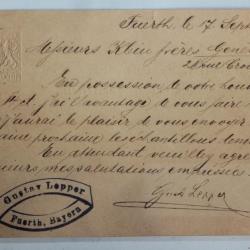 Fuerth, le 17 Sept
Messieurs Klein frères
28 rue
En possession de votre hono
et j'ai l'avantage de vous faire
j'aurai le plaisir de vous envoyer
aine prochaine les échantillons
En attendant veuillez agré
mes salutations
Gustav Lepper
Gustav Lepper
Fuerth, Bayern